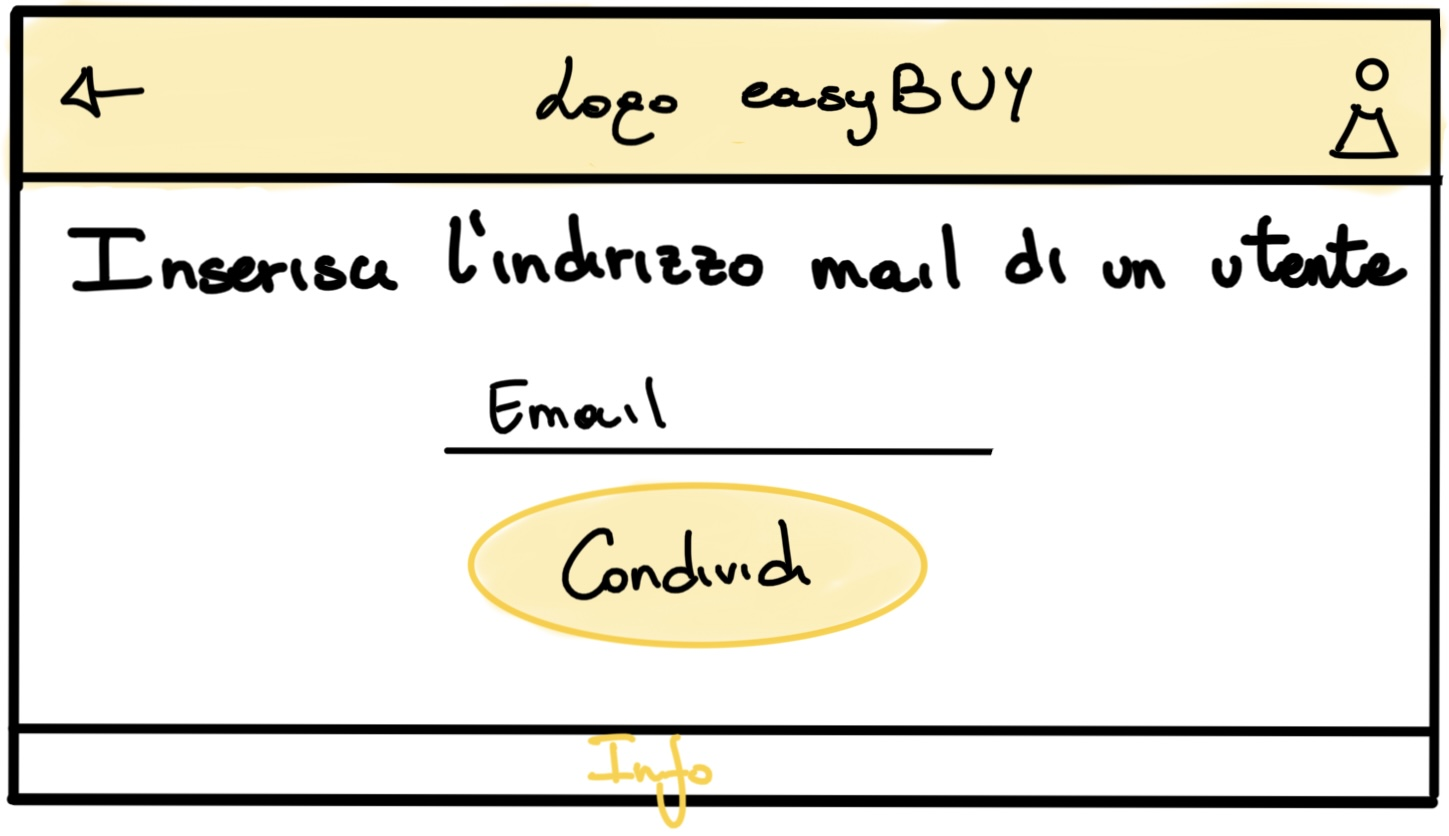 Logo easyBUY
Inserisci l'indirizzo mail di un utente
Email
Condividi
Info